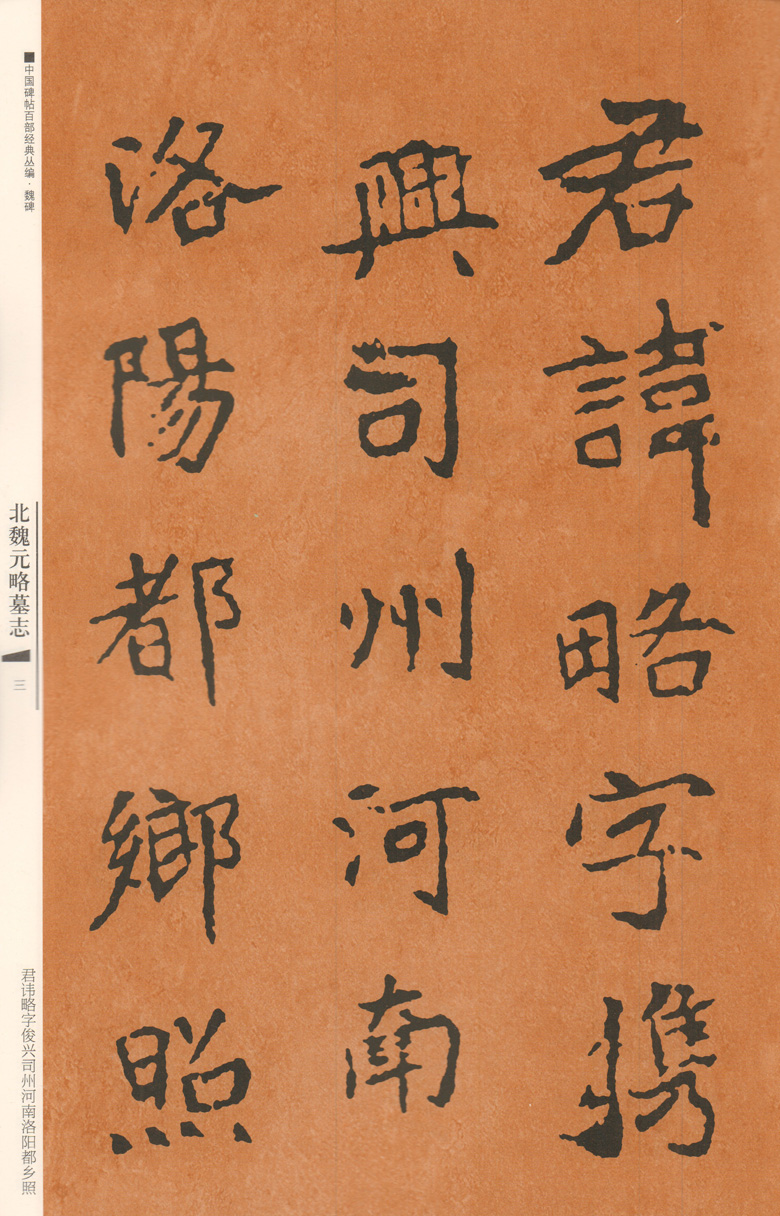 君諱略字携
興司州河南
洛陽都鄉照
中国碑帖百部经典丛编·魏碑
北魏元略墓志
三
君讳略字俊兴司州河南洛阳都乡照